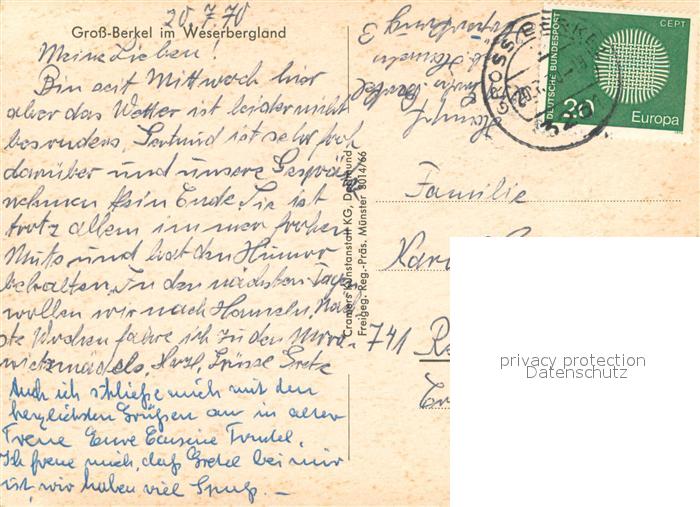 20.7.70
Groß-Berkel im Weserbergland
Meine Lieben!
Bin seit Mittwoch hier
aber das Wetter ist leider nicht
besonders, Gertrud ist sehr froh
darüber und unsere Gespräche
nehmen kein Ende. Sie ist
trotz allem immer frohen
Muts und hat den Humor
behalten. In den nächsten Tagen
wollen wir nach Hameln. Nach-
ste Wochen fahre ich zu den
Herzl. Grüsse Grete
Auch ich schließe mich mit den
herzlichsten Grüßen an in alter
Treue Eure Cousine Trudel.
Ich freue mich, daß Gretel bei mir
ist, wir haben viel Spaß. –
Cramers Kunstanstalt KG, Dortmund
Freigeg. Reg.-Präs. Münster 8014/66
3
b. Hameln
Groß Berkel
GROSS BERKEL
DEUTSCHE BUNDESPOST
CEPT
30
Europa
Familie
741
privacy protection
Datenschutz